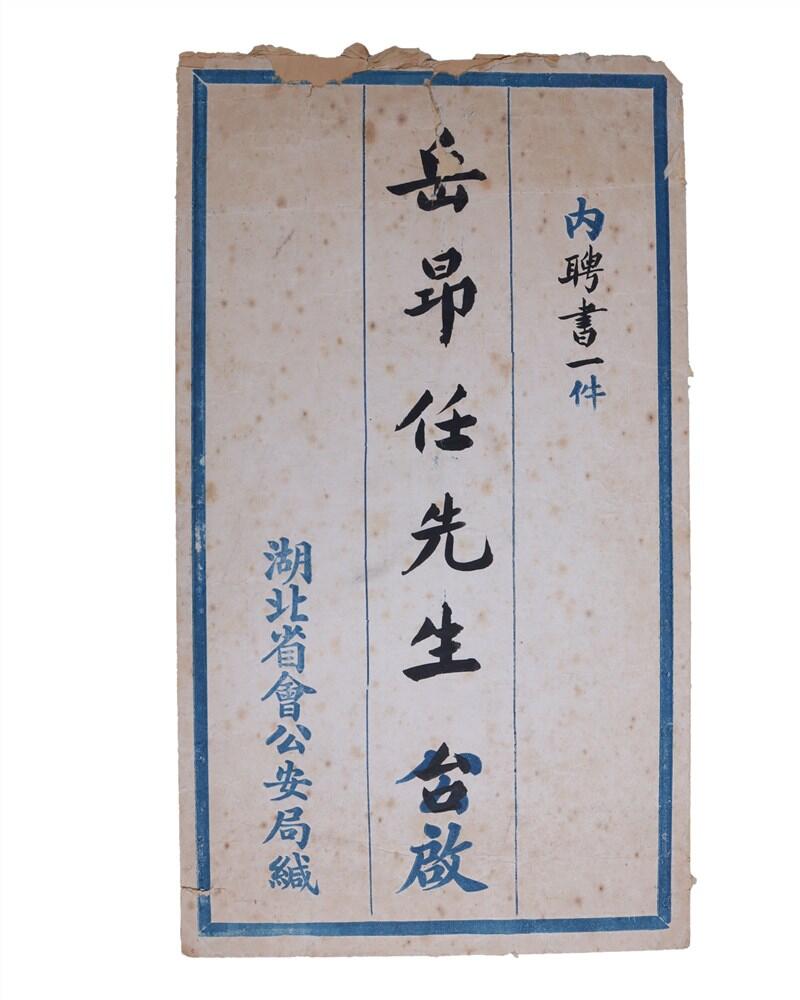 内聘書一件
岳昂任先生台啟
湖北省會公安局緘